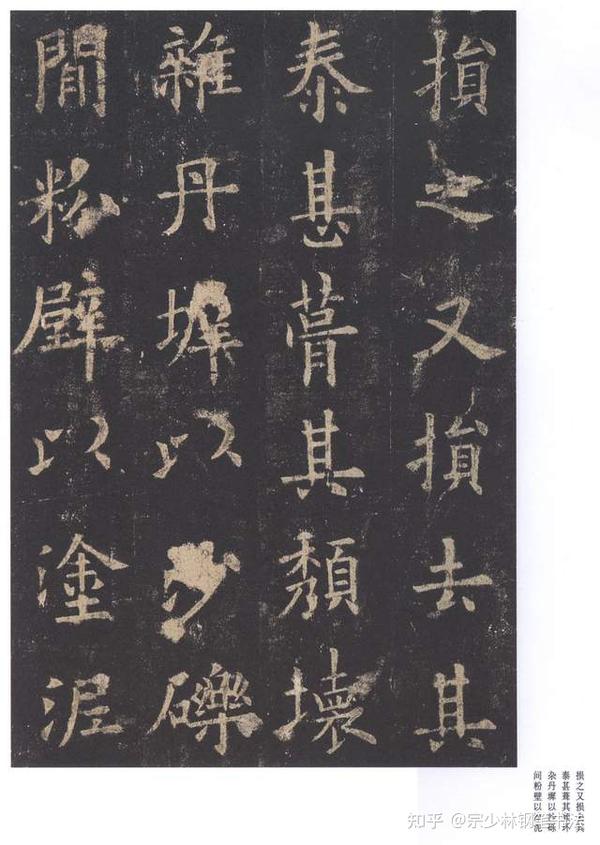 損之又損去其
泰甚葺其頹壞
雜丹墀以沙礫
間粉壁以塗泥
损之又损去其
泰甚葺其颓坏
杂丹墀以沙砾
间粉壁以涂泥
知乎 @宗少林钢笔书法